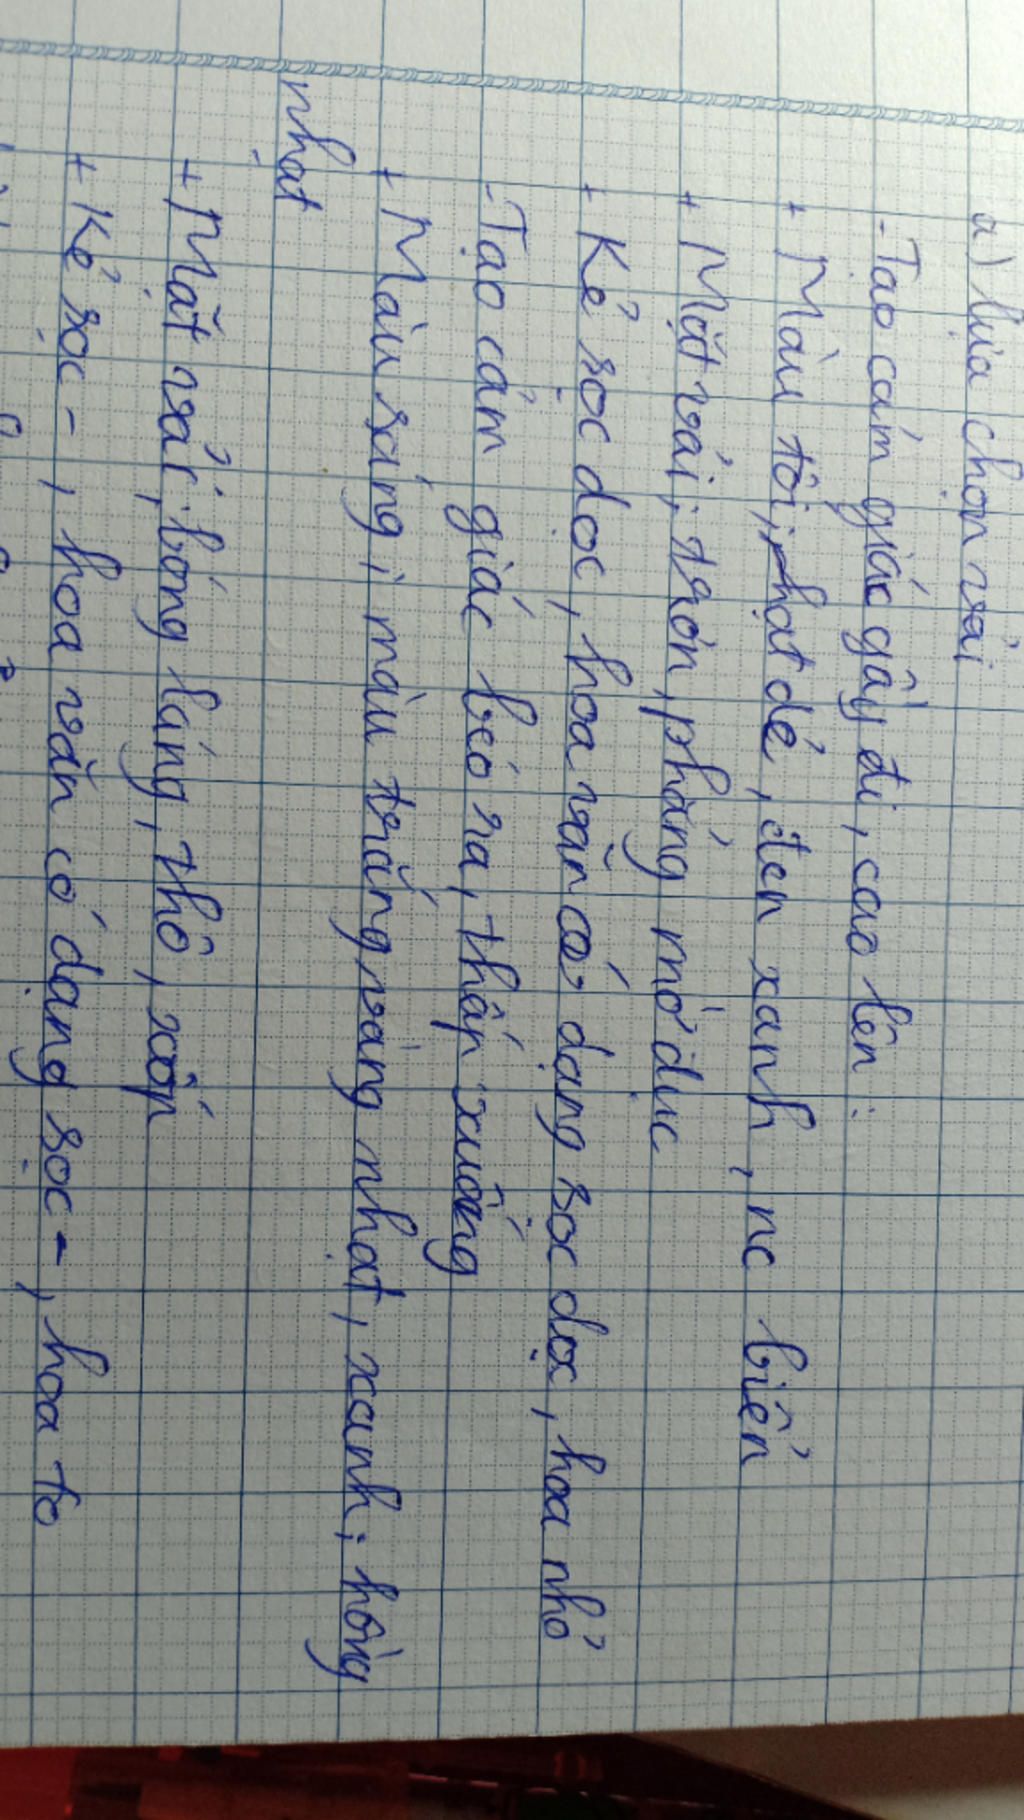 a) lựa chọn vải
- Tạo cảm giác gầy đi, cao lên:
+ Màu tối; hạt dẻ, đen xanh, nc biển
+ Mặt vải; trơn, phẳng mờ đục
+ Kẻ sọc dọc, hoa văn có dạng sọc dọc, hoa nhỏ
- Tạo cảm giác béo ra, thấp xuống
+ Màu sáng; màu trắng, vàng nhạt, xanh, hồng
nhạt
+ Mặt vải; bóng láng, thô, xốp
+ Kẻ sọc -, hoa văn có dạng sọc -, hoa to